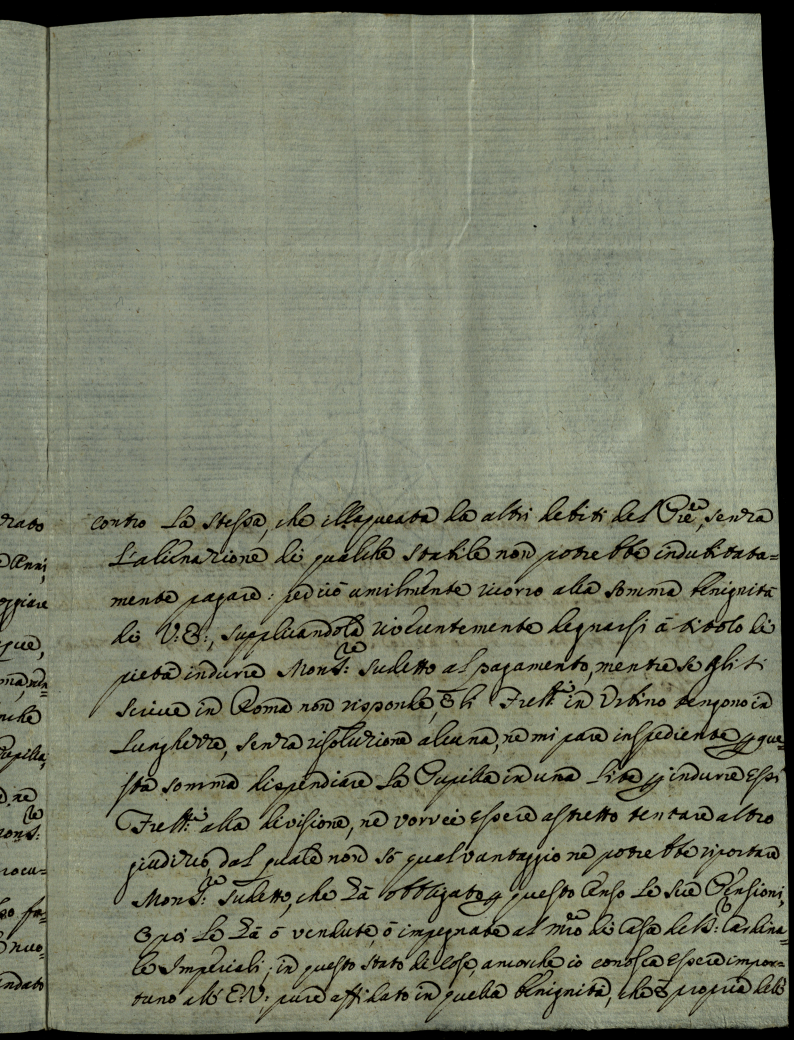 rato
Anni,
eggiare
que,
nche
Pupilla,
e, ne
Mons.re
rocu=
so fa=
nuo=
ndato
contro La Stessa, che illaqueata da altri debiti del Pre, senza
L'alienazione di qualche stabile non potrebbe indubitata=
mente pagare: perciò umilmente ricorro alla somma benignità
di V.E:, supplicandola riverentemente degnarsi à titolo di
pietà indurre Mons.re Sudetto al pagamento, mentre se gli si
scrive in Roma non risponde, e li Frelli in Urbino tengono in
Lunghezze, senza risoluzione alcuna, ne mi pare inspediente p que=
sta somma dispendiare La Pupilla in una Lite p indurre Essi
Frelli alla divisione, ne vorrei essere astretto tentare altro
giudizio, dal quale non sò qual vantaggio ne potrebbe riportare
Mons.re Sudetto, che Hà obbligato p questo Censo Le sue Pensioni,
e poi Le Hà ò vendute, ò impegnate al Mro di Casa del S: Cardina=
le Imperiali; in questo stato di cose, ancorche io conosca essere impor=
tuno all'E.V:, pure affidato in quella benignità, che è propria dell'